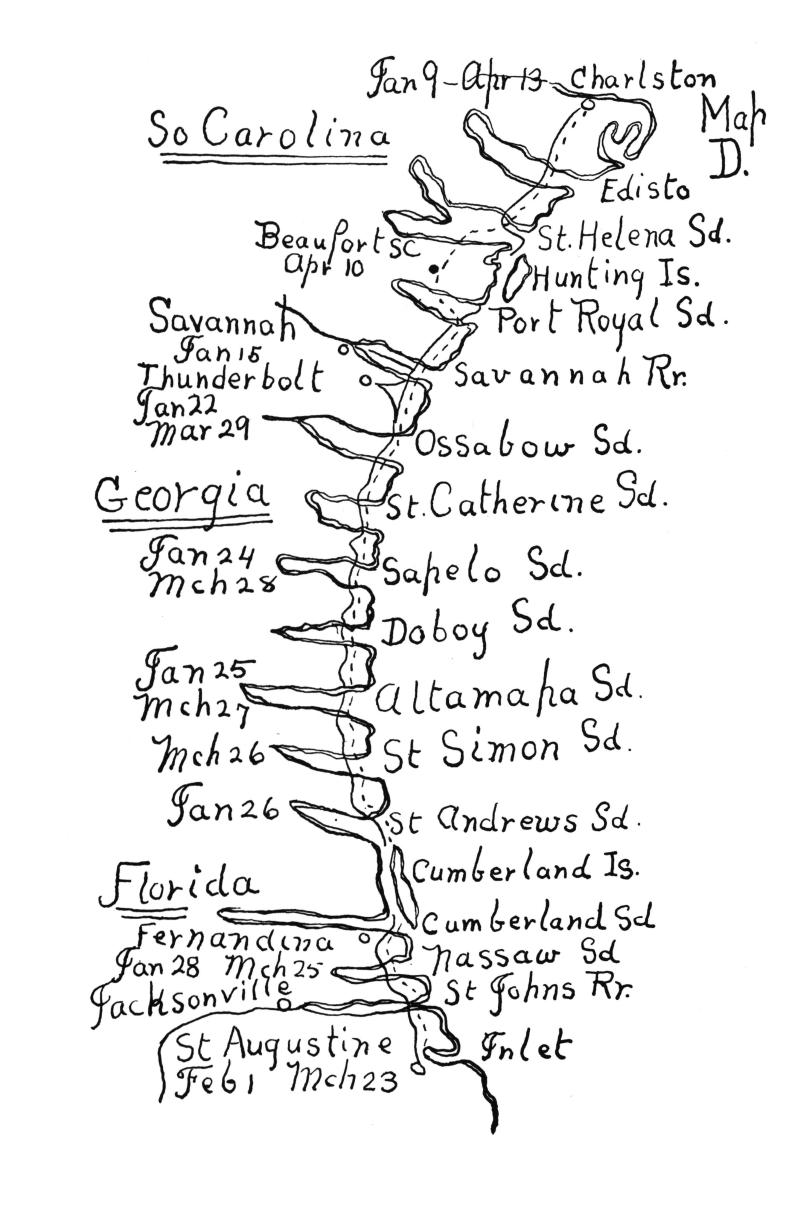 Jan 9 - Apr 13 Charlston
Map
D.
So Carolina
Edisto
Beaufort SC
Apr 10
St. Helena Sd.
Hunting Is.
Port Royal Sd.
Savannah
Jan 15
Thunderbolt
Jan 22
Mar 29
Savannah Rr.
Ossabow Sd.
Georgia
St. Catherine Sd.
Jan 24
Mch 28
Sapelo Sd.
Doboy Sd.
Jan 25
Mch 27
Altamaha Sd.
Mch 26
St Simon Sd.
Jan 26
St Andrews Sd.
Cumberland Is.
Florida
Cumberland Sd
Fernandina
Jan 28 Mch 25
Nassaw Sd
Jacksonville
St Johns Rr.
St Augustine
Feb 1 Mch 23
Inlet